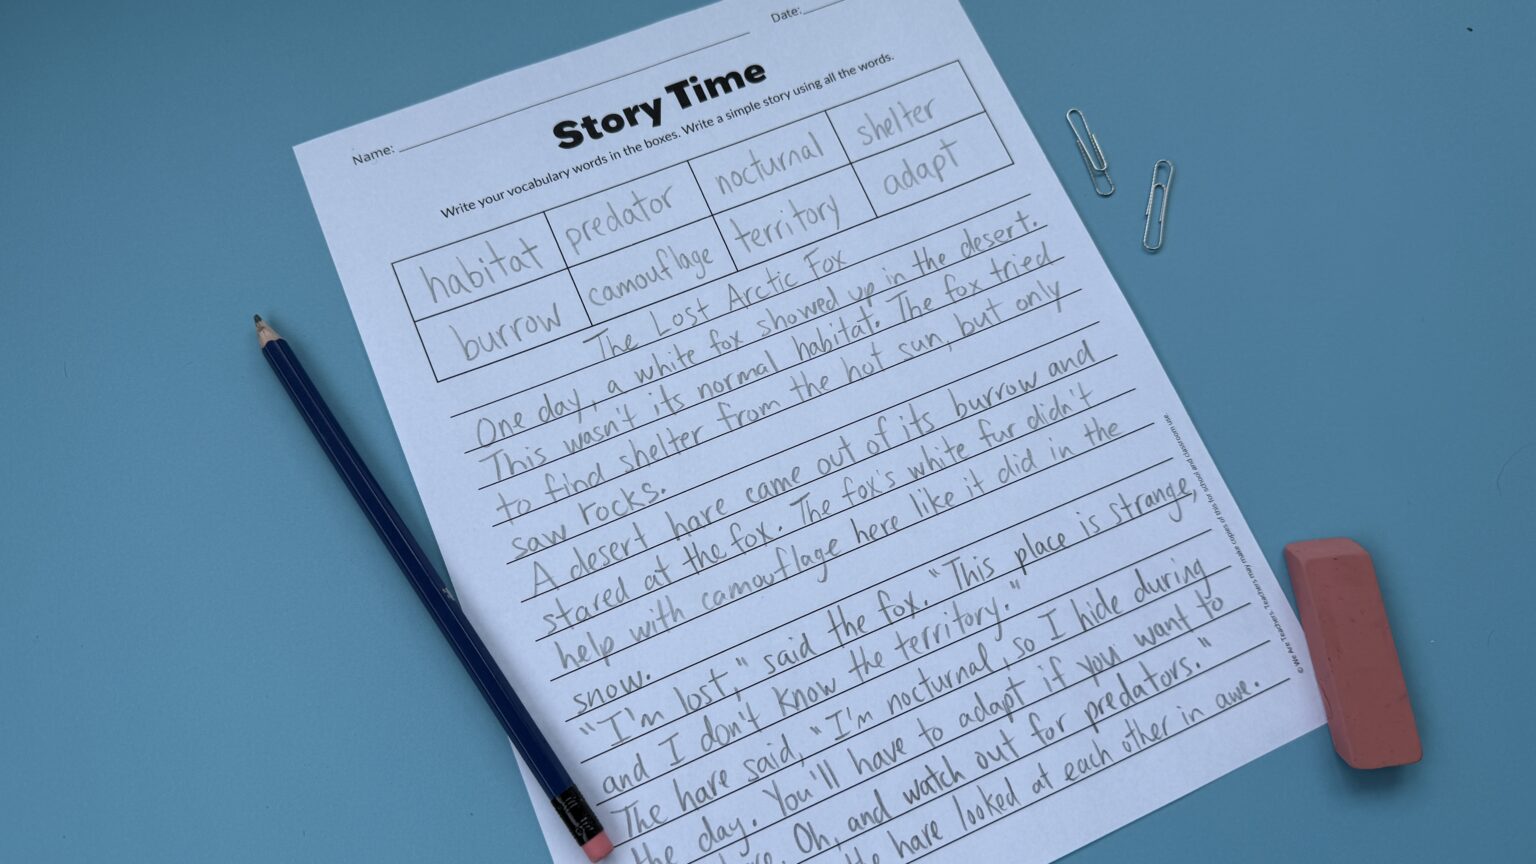 Date:
Name:
Story Time
Write your vocabulary words in the boxes. Write a simple story using all the words.
habitat predator nocturnal shelter
burrow camouflage territory adapt
The Lost Arctic Fox
One day, a white fox showed up in the desert.
This wasn't its normal habitat. The fox tried
to find shelter from the hot sun, but only
saw rocks.
A desert hare came out of its burrow and
stared at the fox. The fox's white fur didn't
help with camouflage here like it did in the
snow.
"I'm lost," said the fox. "This place is strange,
and I don't know the territory."
The hare said, "I'm nocturnal, so I hide during
the day. You'll have to adapt if you want to
Oh, and watch out for predators."
hare looked at each other in awe.
© We Are Teachers. Teachers may make copies of this for school and classroom use.